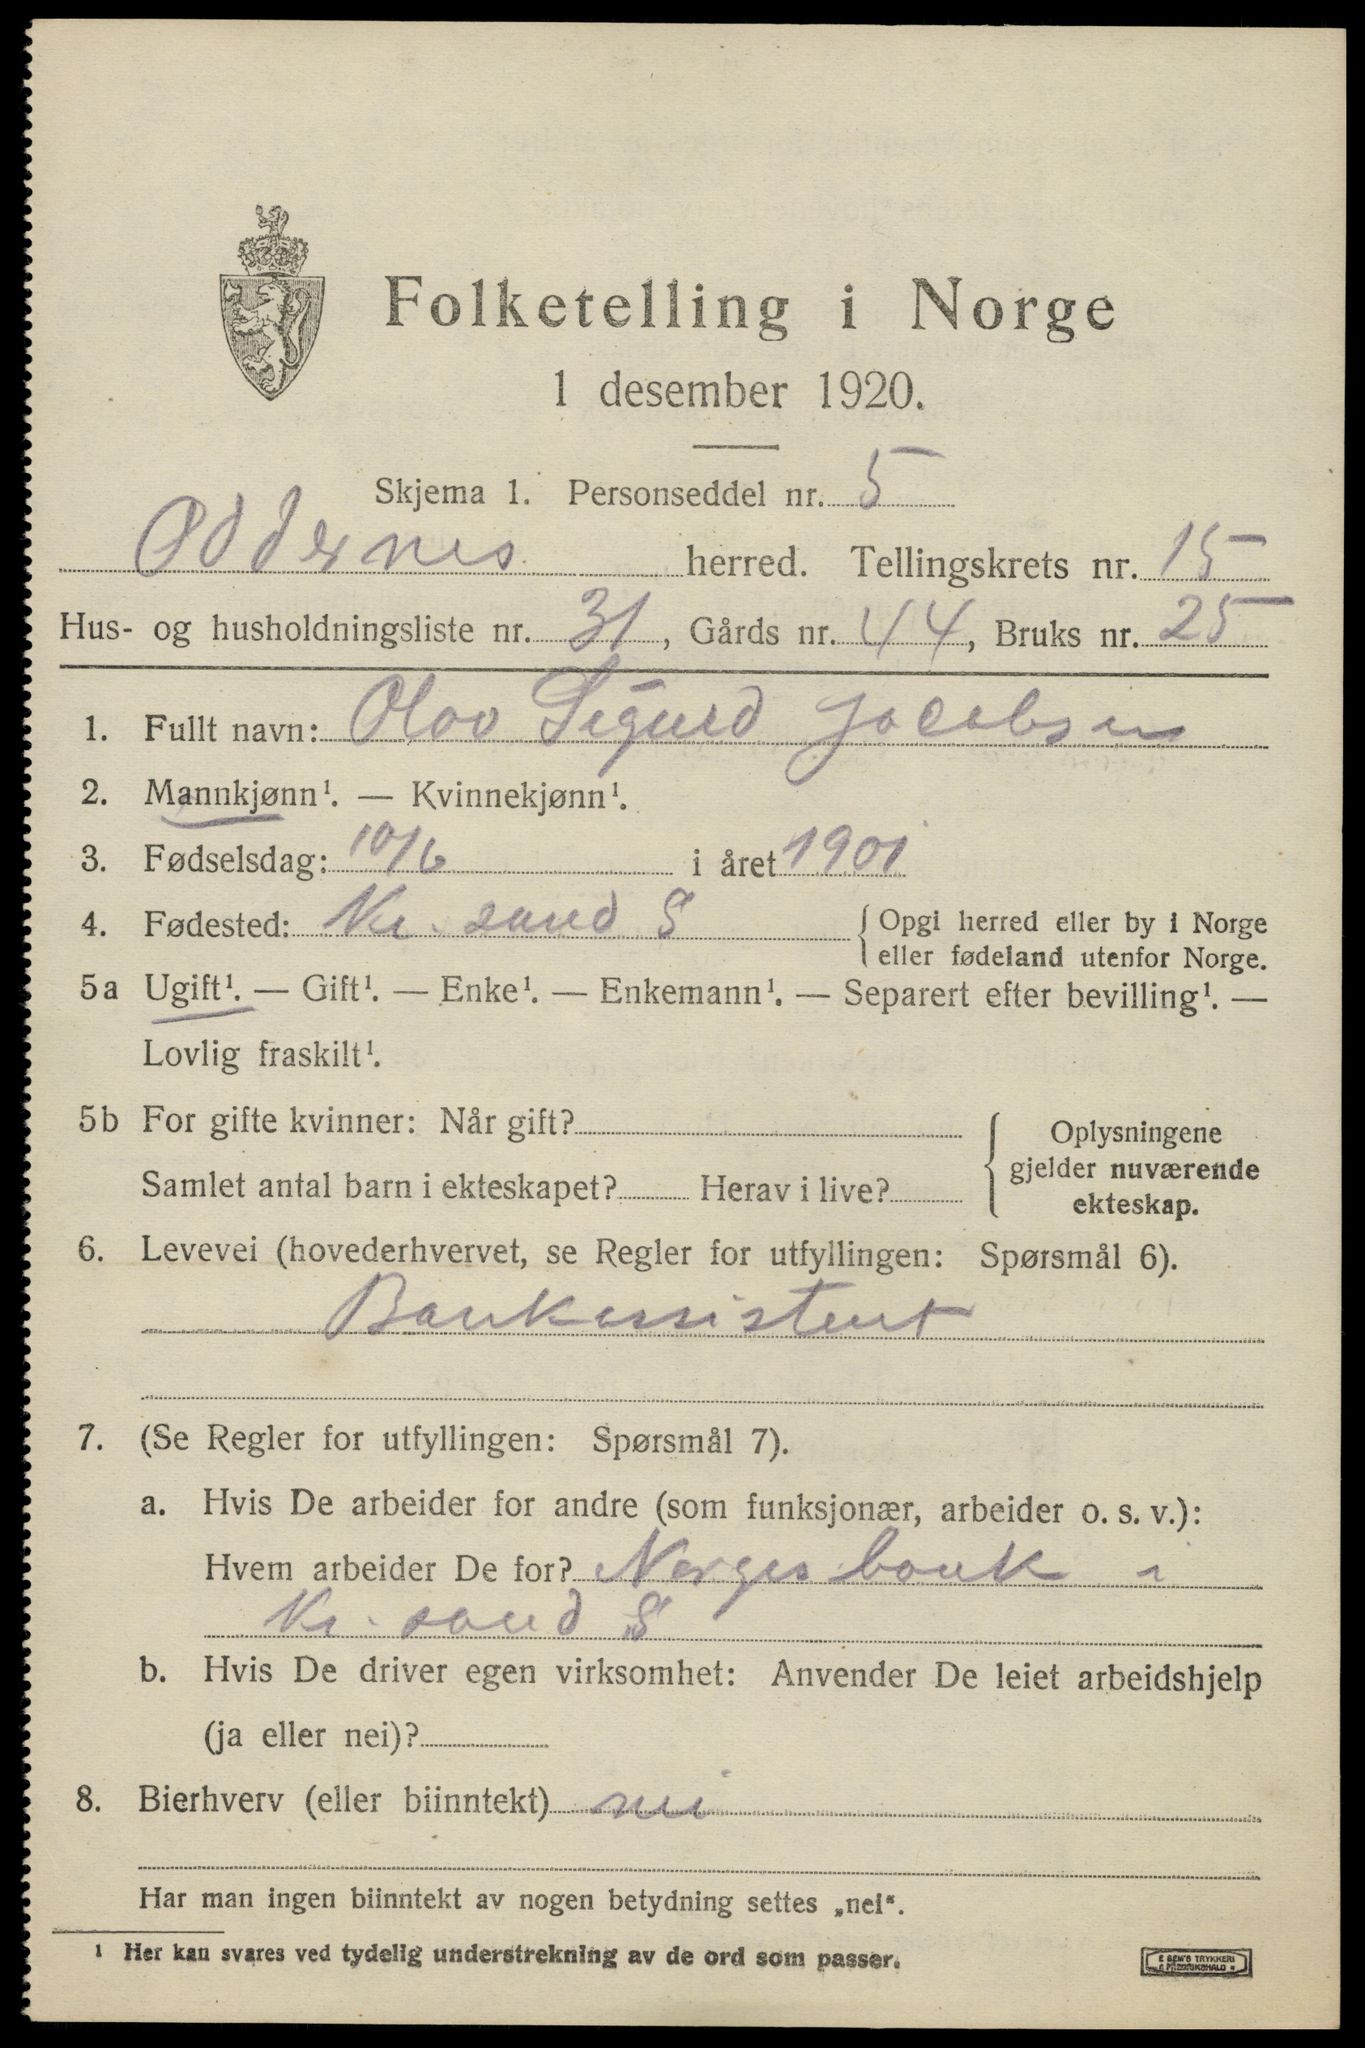 Folketelling i Norge
1 desember 1920.
Skjema 1. Personseddel nr. 5
Oddernes herred. Tellingskrets nr. 15
Hus- og husholdningsliste nr. 31, Gårds nr. 44, Bruks nr. 25
1. Fullt navn: Olav Sigurd Jacobsen
2. Mannkjønn¹. — Kvinnekjønn¹.
3. Fødselsdag: 10/6 i året 1901
4. Fødested: Kr. sand S { Opgi herred eller by i Norge
eller fødeland utenfor Norge.
5a Ugift¹. — Gift¹. — Enke¹. — Enkemann¹. — Separert efter bevilling¹. —
Lovlig fraskilt¹.
5b For gifte kvinner: Når gift?
Samlet antal barn i ekteskapet? Herav i live?
Oplysningene
gjelder nuværende
ekteskap.
6. Levevei (hovederhvervet, se Regler for utfyllingen: Spørsmål 6).
Bankassistent
7. (Se Regler for utfyllingen: Spørsmål 7).
a. Hvis De arbeider for andre (som funksjonær, arbeider o. s. v.):
Hvem arbeider De for? Norges bank i
Kr. sand S
b. Hvis De driver egen virksomhet: Anvender De leiet arbeidshjelp
(ja eller nei)?
8. Bierhverv (eller biinntekt) nei
Har man ingen biinntekt av nogen betydning settes „nei“.
¹ Her kan svares ved tydelig understrekning av de ord som passer.
E SEM'S TRYKKERI
FREDRIKSHALD